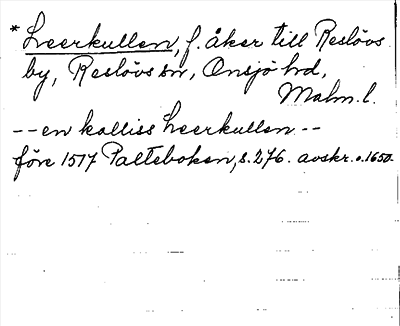 *Leerkullen, f. åker till Reslövs
by, Reslövs sn, Onsjö hd,
Malm. l.
-- en kalliss Leerkullen --
före 1517 Palteboken, s. 276. avskr. o. 1650.